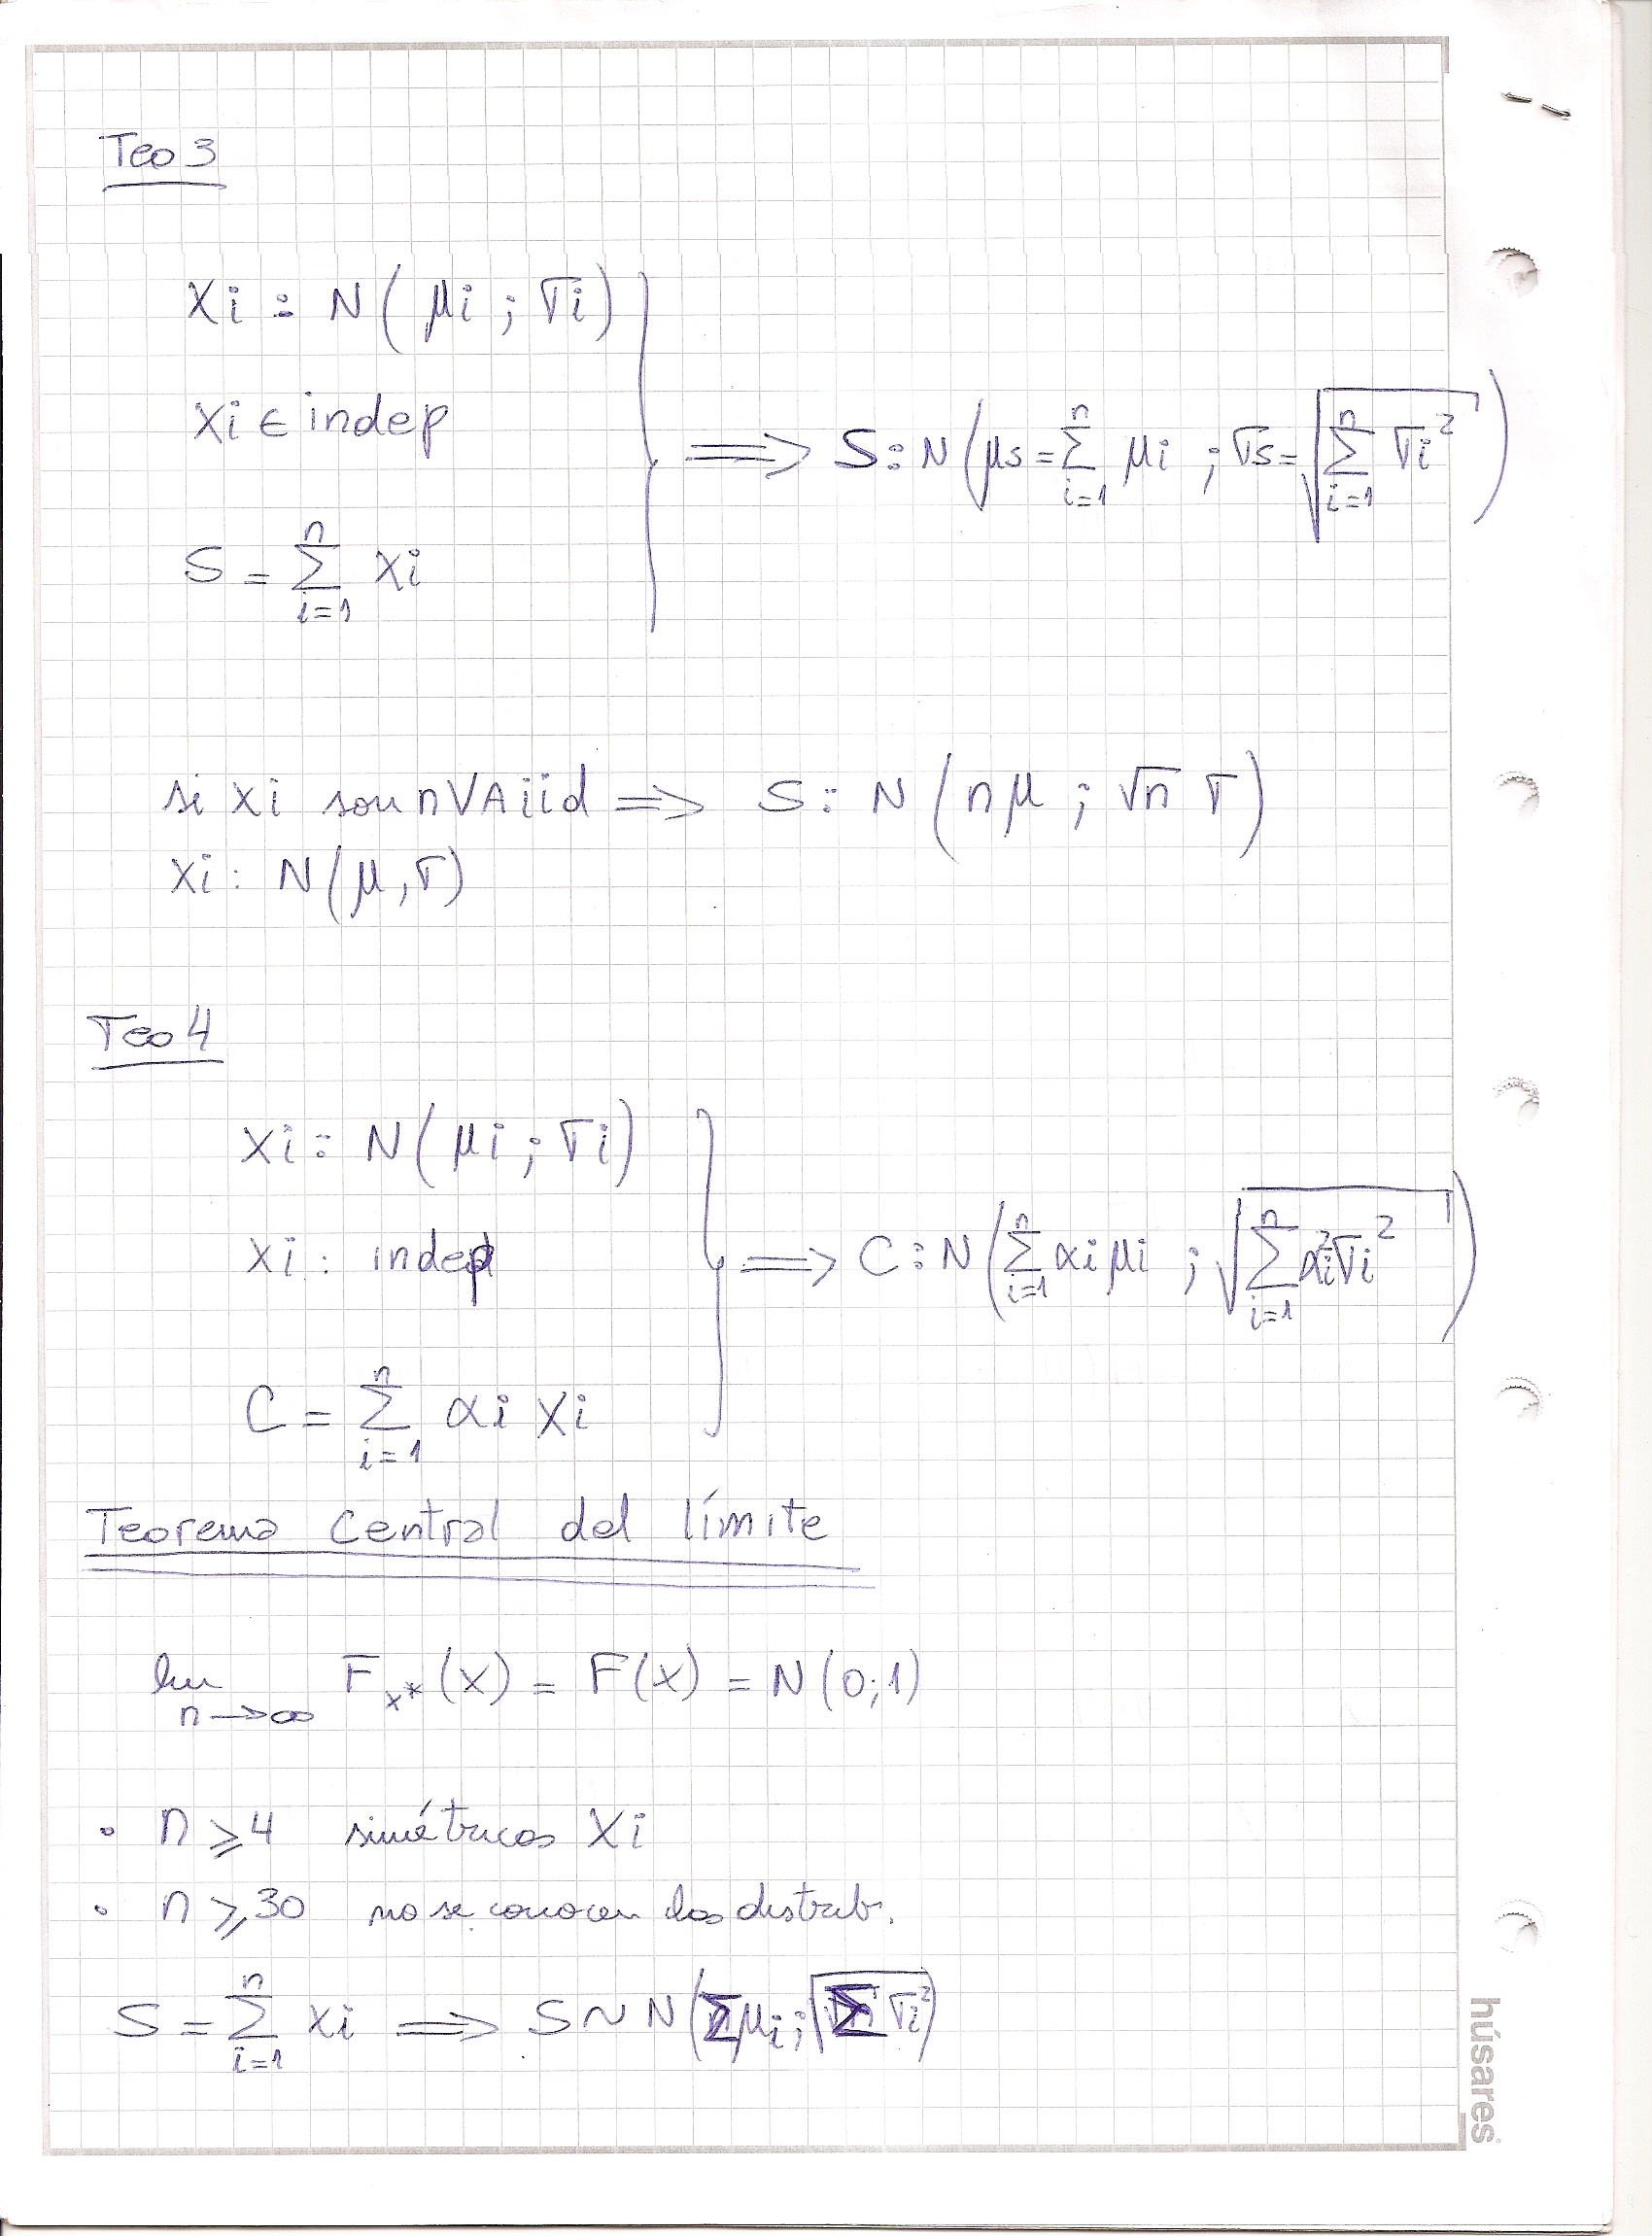 Teo 3
Xi : N(μi ; σi)
Xi ∈ indep
S = Σ_{i=1}^{n} Xi
⟹ S : N(μs = Σ_{i=1}^{n} μi ; σs = √(Σ_{i=1}^{n} σi²))
si Xi son n VA iid ⟹ S : N(nμ ; √n σ)
Xi : N(μ, σ)
Teo 4
Xi : N(μi ; σi)
Xi : indep
C = Σ_{i=1}^{n} αi Xi
⟹ C : N(Σ_{i=1}^{n} αi μi ; √(Σ_{i=1}^{n} αi² σi²))
Teorema Central del límite
lim_{n→∞} F_{x*}(x) = F(x) = N(0;1)
• n ⩾ 4 simétricas Xi
• n ⩾ 30 no se conocen las distrib.
S = Σ_{i=1}^{n} Xi ⟹ S ~ N(Σμi ; √(Σ σi²))
húsares